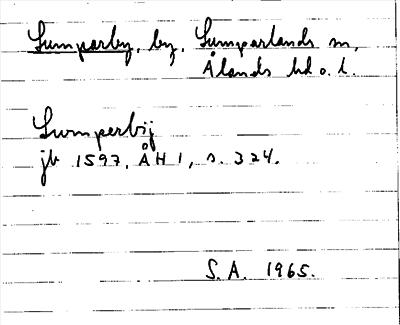 Lumparby, by, Lumparlands sn,
Ålands hd o. l.
Lumperbÿ
jb 1597, ÅH 1, s. 324.
S. A. 1965.